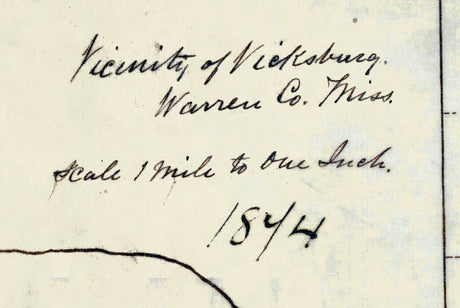 Vicinity of Vicksburg.
Warren Co. Miss.
Scale 1 Mile to One Inch.
1874